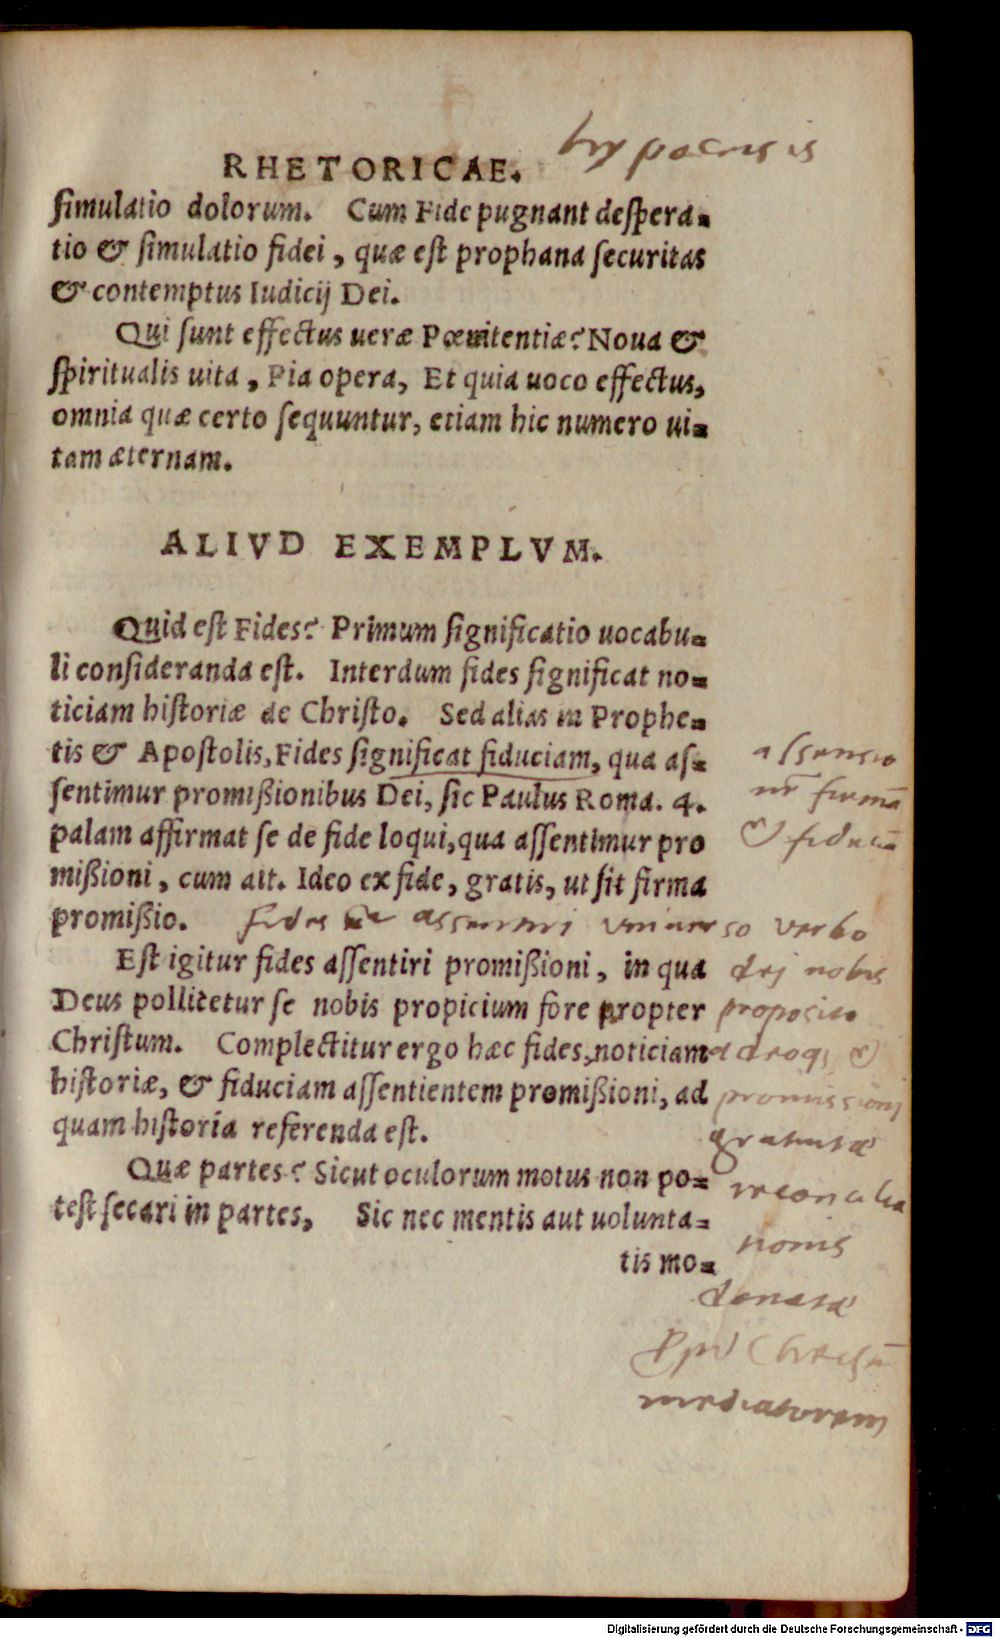 hypocrisis
RHETORICAE.
ſimulatio dolorum. Cum Fide pugnant deſpera⸗
tio & ſimulatio fidei, quæ eſt prophana ſecuritas
& contemptus Iudicij Dei.
Qui ſunt effectus ueræ Pœnitentiæ? Noua &
ſpiritualis uita, Pia opera, Et quia uoco effectus,
omnia quæ certo ſequuntur, etiam hic numero ui⸗
tam æternam.
ALIVD EXEMPLVM.
Quid eſt Fides? Primum ſignificatio uocabu⸗
li conſideranda eſt. Interdum fides ſignificat no⸗
ticiam hiſtoriæ de Chriſto. Sed alias in Prophe⸗
tis & Apoſtolis, Fides ſignificat fiduciam, qua aſ⸗
ſentimur promißionibus Dei, ſic Paulus Roma. 4.
palam affirmat ſe de fide loqui, qua aſſentimur pro
mißioni, cum ait. Ideo ex fide, gratis, ut ſit firma
promißio.
Eſt igitur fides aſſentiri promißioni, in qua
Deus pollicetur ſe nobis propicium fore propter
Chriſtum. Complectitur ergo hæc fides, noticiam
hiſtoriæ, & fiduciam aſſentientem promißioni, ad
quam hiſtoria referenda eſt.
Quæ partes? Sicut oculorum motus non po⸗
teſt ſecari in partes, Sic nec mentis aut uolunta⸗
tis mo⸗
aſſensio
firmā
& fiduciā
fides assentiri universo verbo
dei nobis
proposito
adeoq; &
promissioni
gratuitæ
reconcilia
tionis
donatæ
Christū
mediatorem
Digitalisierung gefördert durch die Deutsche Forschungsgemeinschaft - DFG